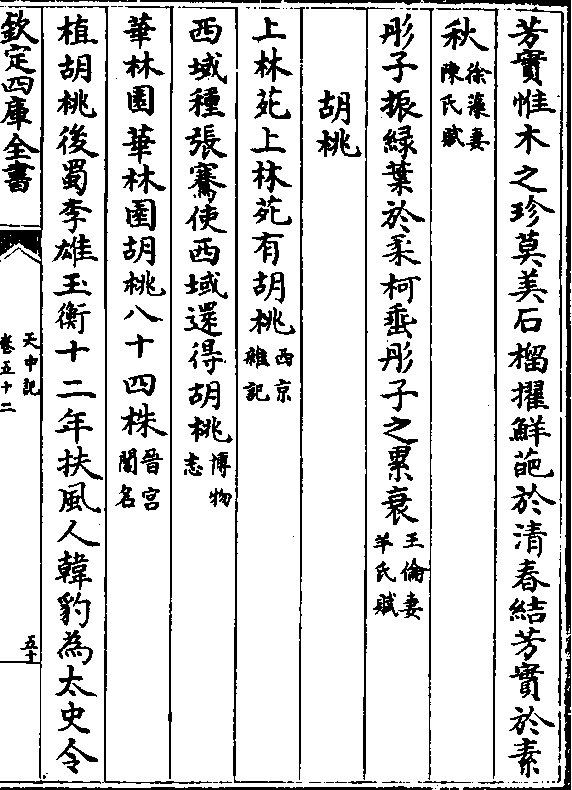 芳實惟木之珍莫美石榴擢鮮葩於清春結芳實於素
秋徐藻妻陳氏賦
彤子振綠葉於柔柯垂彤子之累衰王倫妻羊氏賦
胡桃
上林苑上林苑有胡桃西京雜記
西域種張騫使西域還得胡桃博物志
華林園華林園胡桃八十四株晉宮閣名
植胡桃後蜀李雄玉衡十二年扶風人韓豹為太史令
欽定四庫全書
天中記
卷五十二
五十